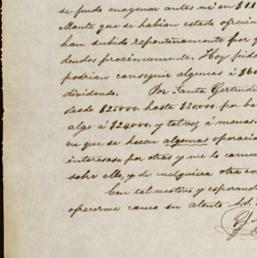 se pudo enagenar antes ni en $11
Monte que se habian estado ofrecien
han subido repentinamente por
dendos proximamente. Hoy pide
podrian conseguir algunas á $60
dividendo. Por Santa Gertrudi
desde $25000 hasta $30000 por ba
algo á $24000, y talvez á menos.
ra que se hacen algunas operacio
interesase por otras y me lo comu
sobre ello, y de cualquiera otra co
Con tal motivo y esperando
ofrecerme como su atento S.S.